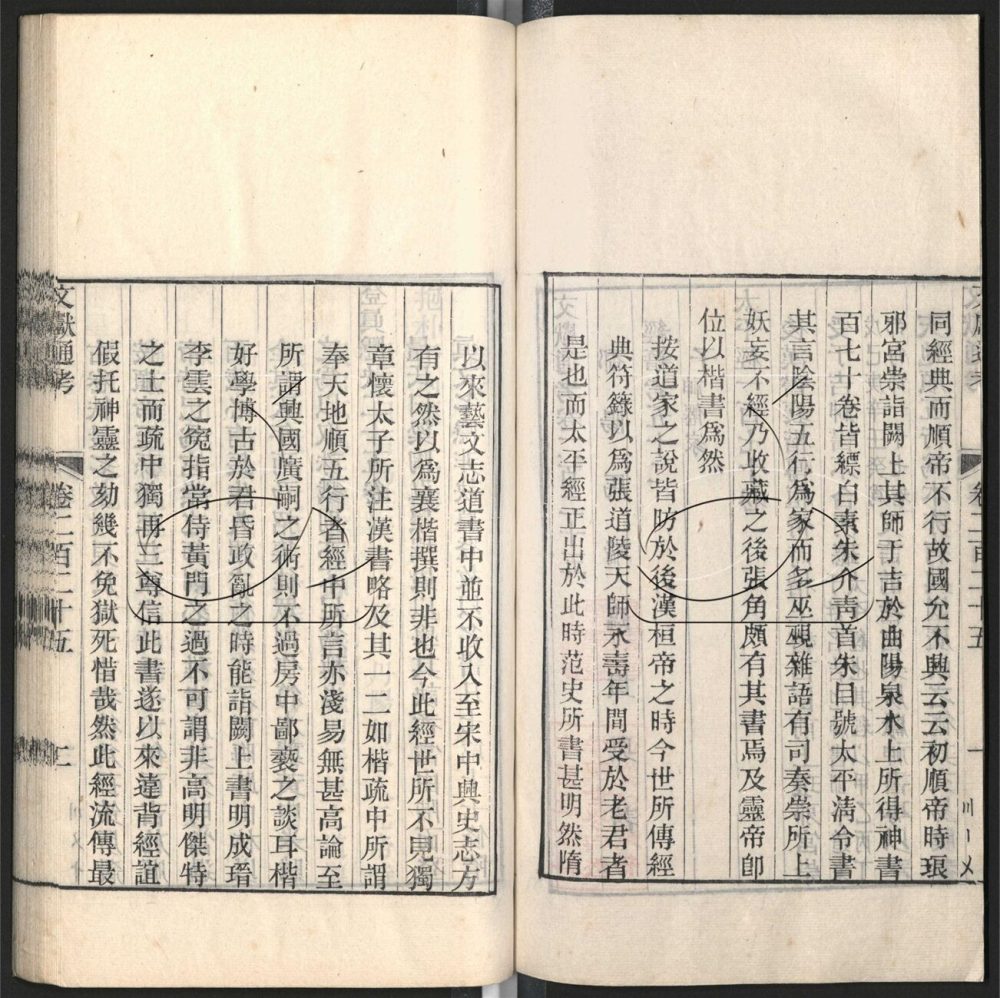 同經典而順帝不行故國允不興云云初順帝時琅
邪宮崇詣闕上其師于吉於曲陽泉水上所得神書
百七十卷皆縹白素朱介靑首朱目號太平淸令書
其言陰陽五行爲家而多巫覡雜語有司奏崇所上
妖妄不經乃收藏之後張角頗有其書焉及靈帝卽
位以楷書爲然
按道家之說皆昉於後漢桓帝之時今世所傳經
典符籙以爲張道陵天師永壽年間受於老君者
是也而太平經正出於此時范史所書甚明然隋
以來藝文志道書中並不收入至宋中興史志方
有之然以爲襄楷撰則非也今此經世所不見獨
章懷太子所注漢書略及其一二如楷疏中所謂
奉天地順五行者經中所言亦淺易無甚高論至
所謂興國廣嗣之術則不過房中鄙褻之談耳楷
好學博古於君昏政亂之時能詣闕上書明成瑨
李雲之寃指常侍黃門之過不可謂非高明傑特
之士而疏中獨再三尊信此書遂以來違背經誼
假托神靈之劾幾不免獄死惜哉然此經流傳最
文獻通考 卷二百二十五 二